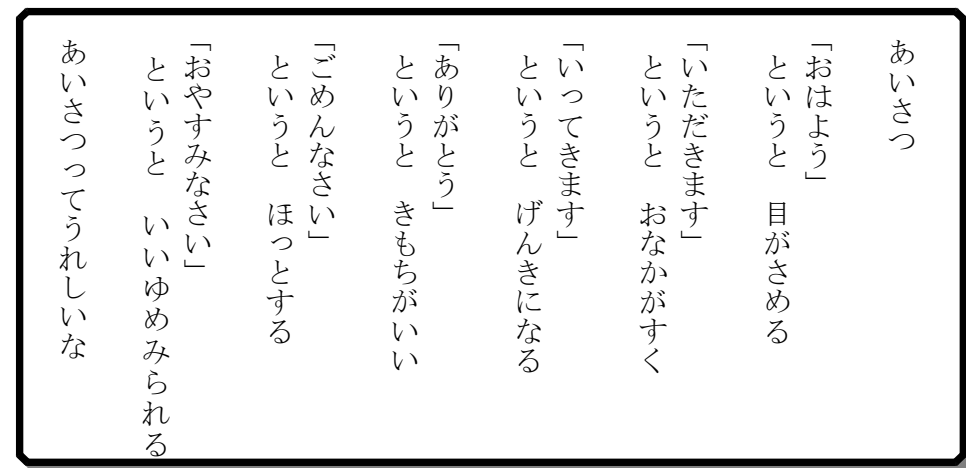 あいさつ
「おはよう」
というと　目がさめる
「いただきます」
というと　おなかがすく
「いってきます」
というと　げんきになる
「ありがとう」
というと　きもちがいい
「ごめんなさい」
というと　ほっとする
「おやすみなさい」
というと　いいゆめみられる
あいさつってうれしいな